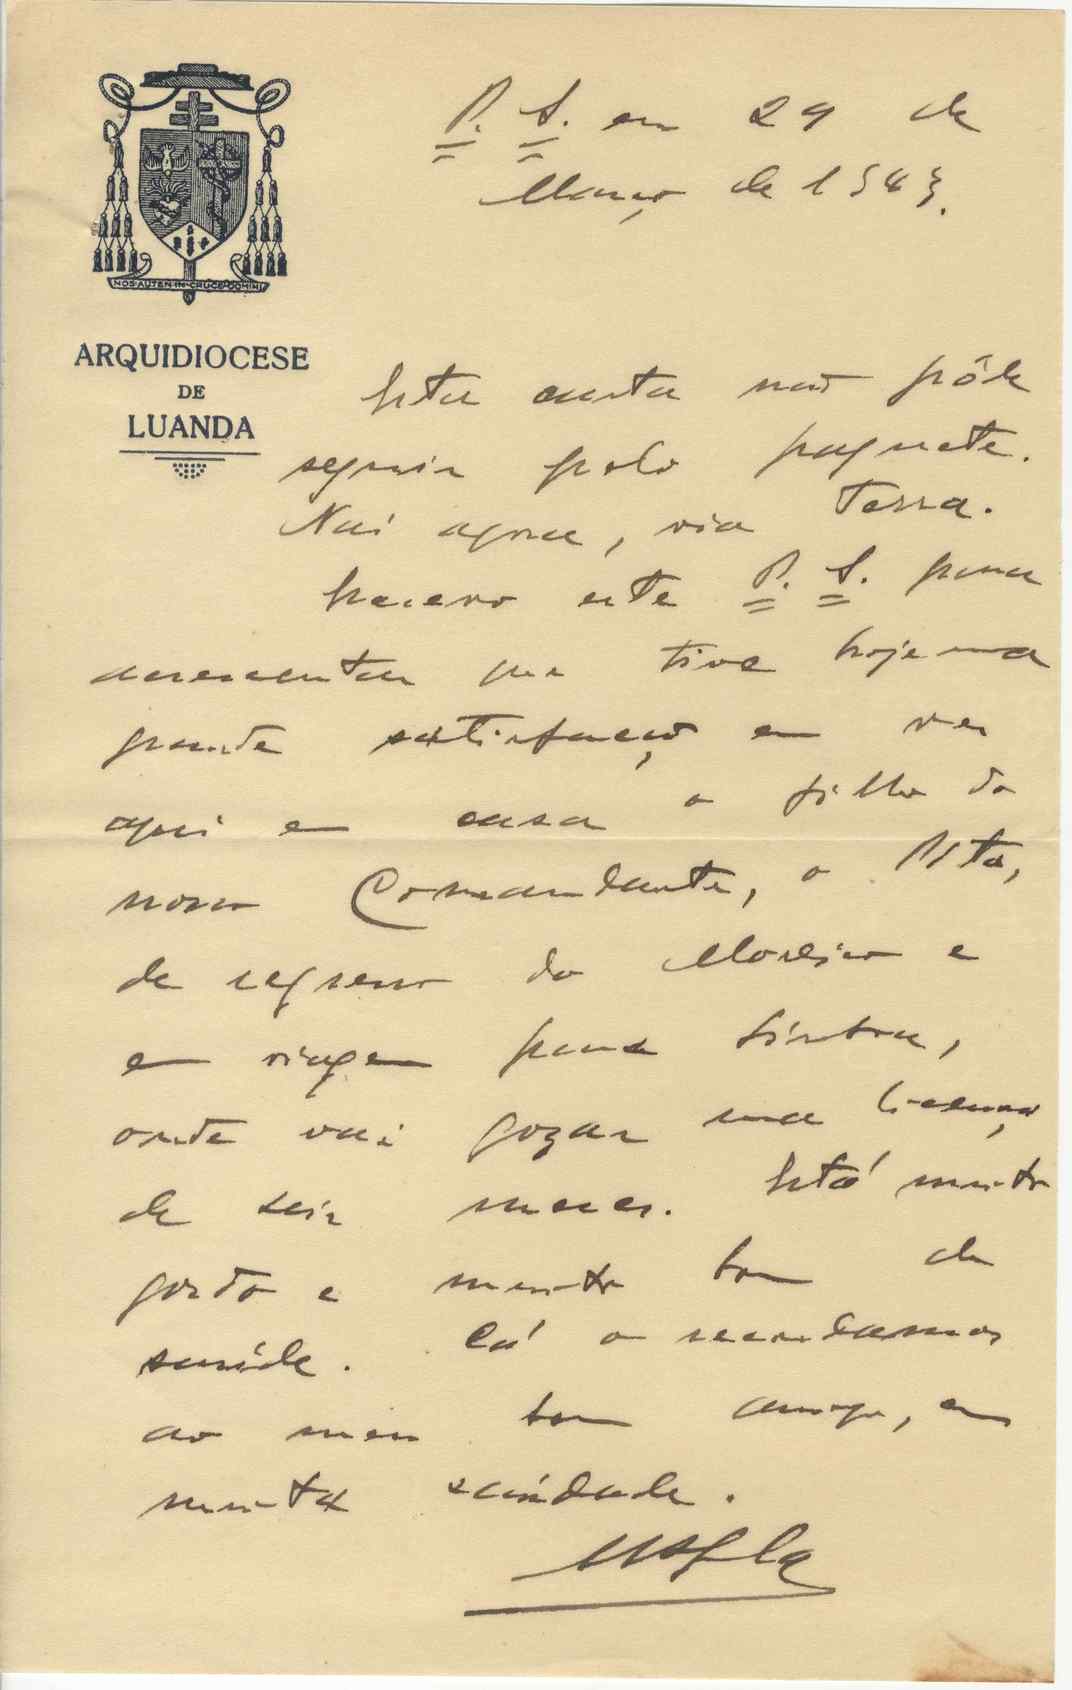 NOS·AUTEM·IN·CRUCE·DOMINI
ARQUIDIOCESE
DE
LUANDA
P. S. em 29 de
Março de 1943.
Esta carta não pôde
seguir pelo paquete.
Vai agora, via Terra.
Escrevo este P. S. para
acrescentar que tive hoje uma
grande satisfação em ver
aqui em casa o filho do
nosso Comandante, o
de regresso do e
em viagem para Sintra,
onde vai gozar uma licença
de seis meses. Está muito
gordo e muito bom de
saúde. Cá o recordamos
ao meu bom amigo, com
muita saúdade.